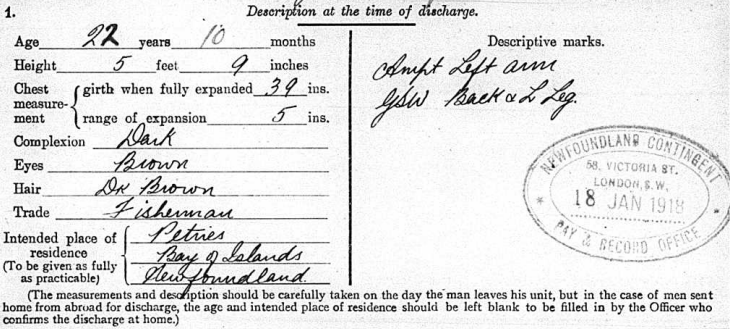 1. Description at the time of discharge.
Age 22 years 10 months
Height 5 feet 9 inches
Chest measure-ment { girth when fully expanded 39 ins.
range of expansion 5 ins.
Complexion Dark
Eyes Brown
Hair Dk Brown
Trade Fisherman
Intended place of residence (To be given as fully as practicable) { Petries
Bay of Islands
Newfoundland
Descriptive marks.
Ampt Left arm
GSW Back & L Leg.
NEWFOUNDLAND CONTINGENT
58, VICTORIA ST.
LONDON, S.W.
18 JAN 1918
PAY & RECORD OFFICE
(The measurements and description should be carefully taken on the day the man leaves his unit, but in the case of men sent
home from abroad for discharge, the age and intended place of residence should be left blank to be filled in by the Officer who
confirms the discharge at home.)